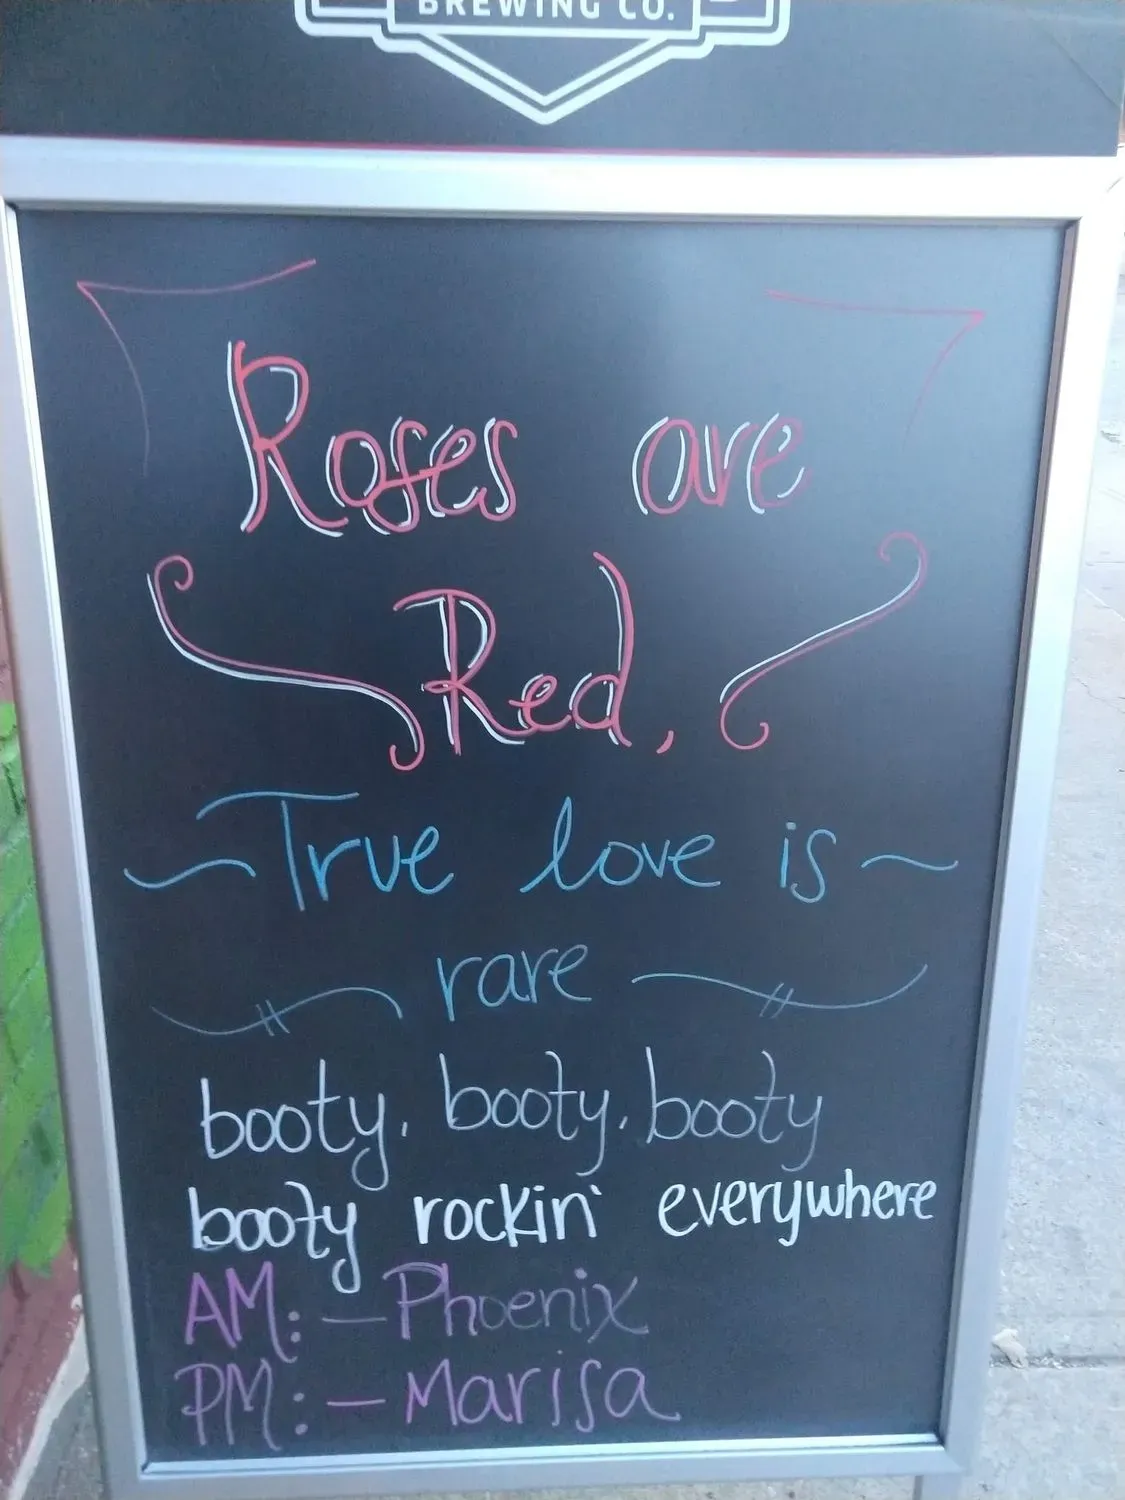 BREWING CO.
Roses are
Red,
True love is
rare
booty, booty, booty
booty rockin' everywhere
AM: - Phoenix
PM: - Marisa